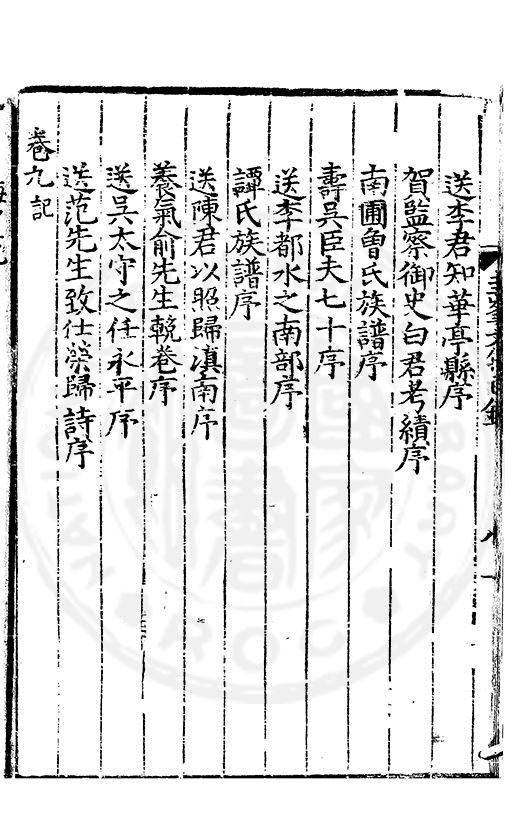 送李君知華亭縣序
賀監察御史白君考績序
南圃魯氏族譜序
壽吳臣夫七十序
送李都水之南部序
譚氏族譜序
送陳君以照歸滇南序
養氣俞先生輓卷序
送吳太守之任永平序
送范先生致仕榮歸詩序
卷九記